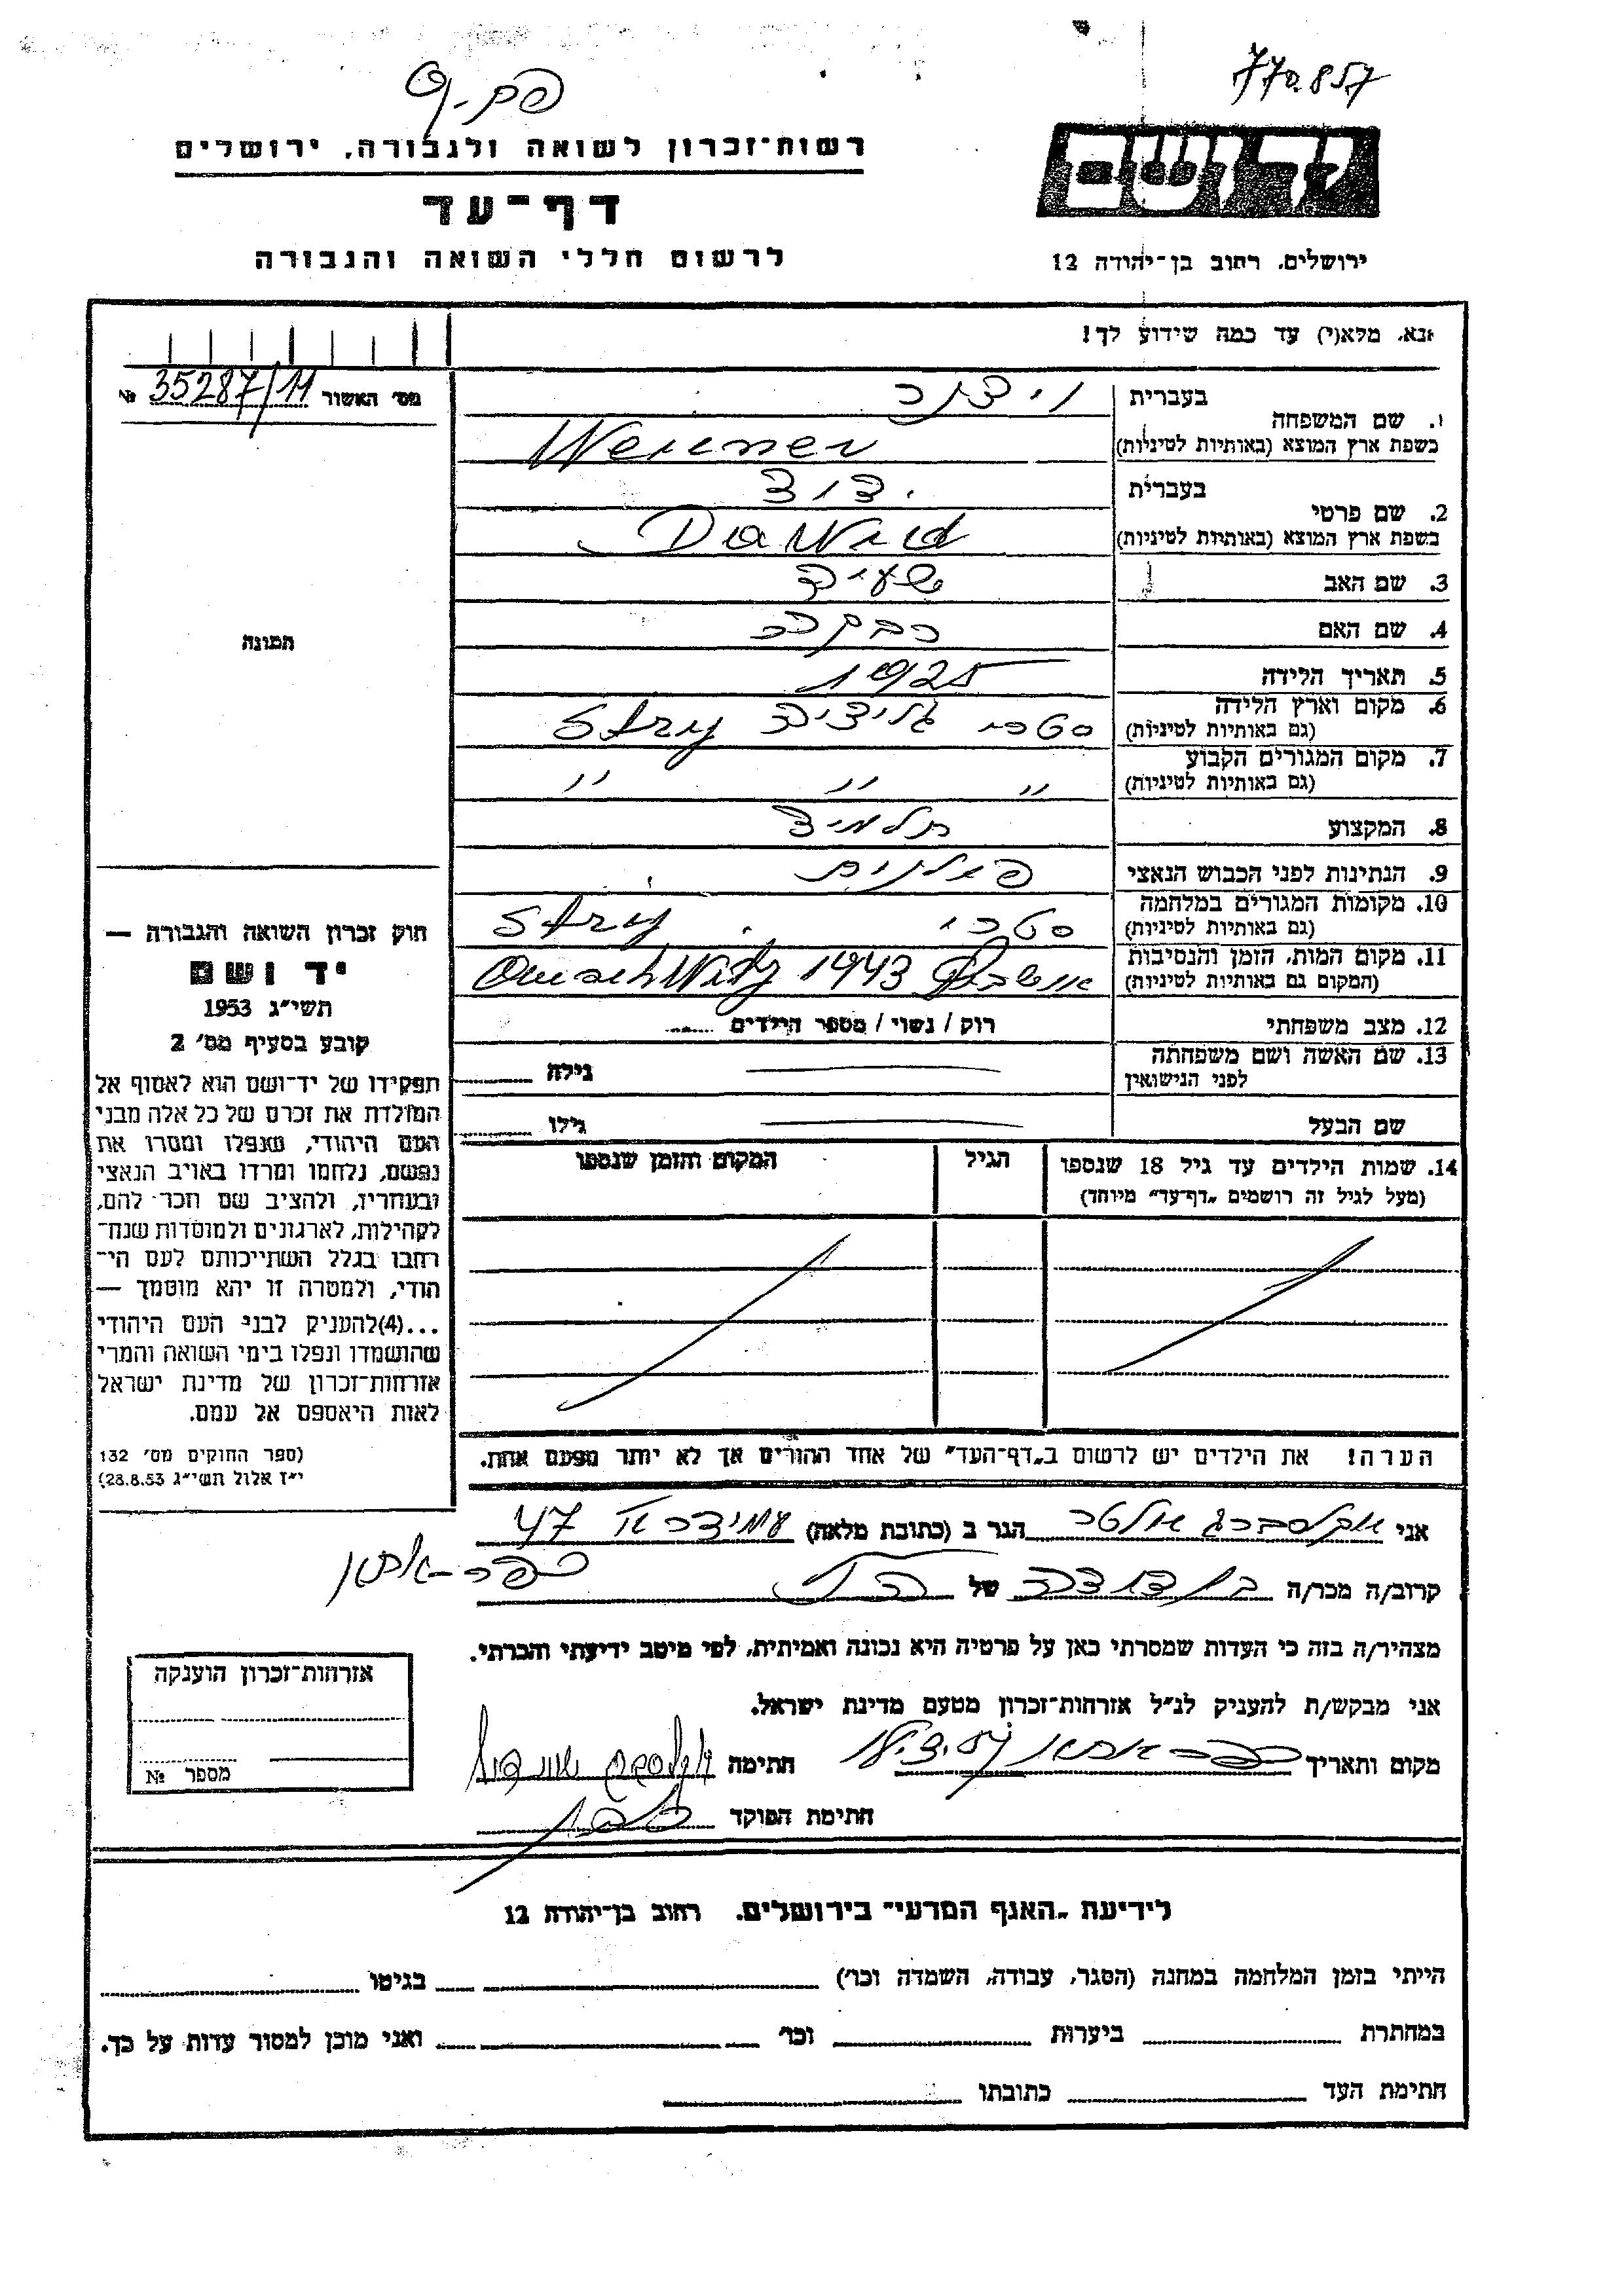 770.857
רשות־זכרון לשואה ולגבורה, ירושלים
דף־עד
לרשום חללי השואה והגבורה
יד ושם
ירושלים, רחוב בן־יהודה 12
נא, מלא(י) עד כמה שידוע לך!
מס׳ האשור 35287/11 №
1. שם המשפחה
בעברית
בשפת ארץ המוצא (באותיות לטיניות)
2. שם פרטי
בעברית דוד
בשפת ארץ המוצא (באותיות לטיניות) Dawid
3. שם האב
4. שם האם רבקה
5. תאריך הלידה 1925
6. מקום וארץ הלידה סטרי גליציה Stry
(גם באותיות לטיניות)
7. מקום המגורים הקבוע ״ ״ ״
(גם באותיות לטיניות)
8. המקצוע תלמיד
9. הנתינות לפני הכבוש הנאצי פולנית
10. מקומות המגורים במלחמה סטרי Stry
(גם באותיות לטיניות)
11. מקום המות, הזמן והנסיבות 1943
(המקום גם באותיות לטיניות)
12. מצב משפחתי רוק / נשוי / מספר הילדים
13. שם האשה ושם משפחתה
לפני הנישואין גילה
שם הבעל גילו
14. שמות הילדים עד גיל 18 שנספו הגיל המקום והזמן שנספו
(מעל לגיל זה רושמים „דף־עד״ מיוחד)
הערה! את הילדים יש לרשום ב„דף־העד״ של אחד ההורים אך לא יותר מפעם אחת.
תמונה
חוק זכרון השואה והגבורה —
יד ושם
תשי״ג 1953
קובע בסעיף מס׳ 2
תפקידו של יד־ושם הוא לאסוף אל
המולדת את זכרם של כל אלה מבני
העם היהודי, שנפלו ומסרו את
נפשם, נלחמו ומרדו באויב הנאצי
ובעוזריו, ולהציב שם וזכר להם,
לקהילות, לארגונים ולמוסדות שנח־
רבו בגלל השתייכותם לעם הי־
הודי, ולמטרה זו יהא מוסמך —
...(4)להעניק לבני העם היהודי
שהושמדו ונפלו בימי השואה והמרי
אזרחות־זכרון של מדינת ישראל
לאות היאספם אל עמם.
(ספר החוקים מס׳ 132
י״ז אלול תשי״ג 28.8.53)
אני הגר ב (כתובת מלאה) 47
קרוב/ה מכר/ה של
מצהיר/ה בזה כי העדות שמסרתי כאן על פרטיה היא נכונה ואמיתית, לפי מיטב ידיעתי והכרתי.
אני מבקש/ת להעניק לנ״ל אזרחות־זכרון מטעם מדינת ישראל.
מקום ותאריך חתימה
חתימת הפוקד
אזרחות־זכרון הוענקה
מספר №
לידיעת „האגף המדעי״ בירושלים, רחוב בן־יהודה 12
הייתי בזמן המלחמה במחנה (הסגר, עבודה, השמדה וכו׳) בגיטו
במחתרת ביערות וכו׳ ואני מוכן למסור עדות על כך.
חתימת העד כתובתו